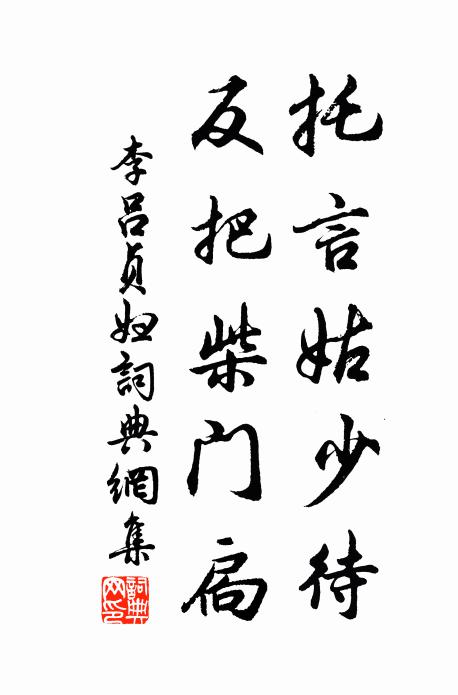 托言姑少待
反把柴门扃
李呂貞妇詞典網集
詞典网印